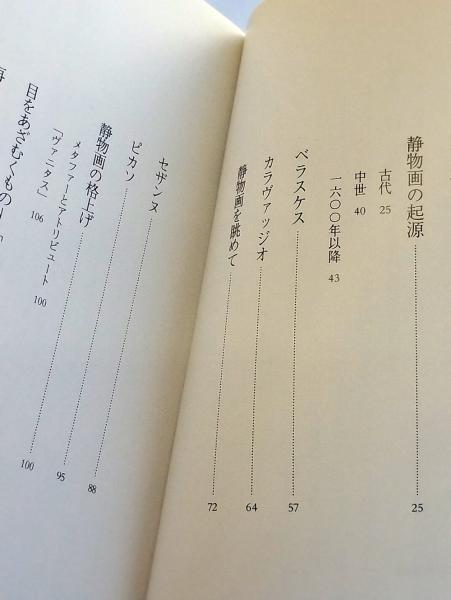 静物画の起源……25
古代 25
中世 40
一六〇〇年以降 43
ベラスケス……57
カラヴァッジオ……64
静物画を眺めて……72
セザンヌ……88
ピカソ……95
静物画の格上げ……100
メタファーとアトリビュート 100
「ヴァニタス」 106
目をあざむくもの